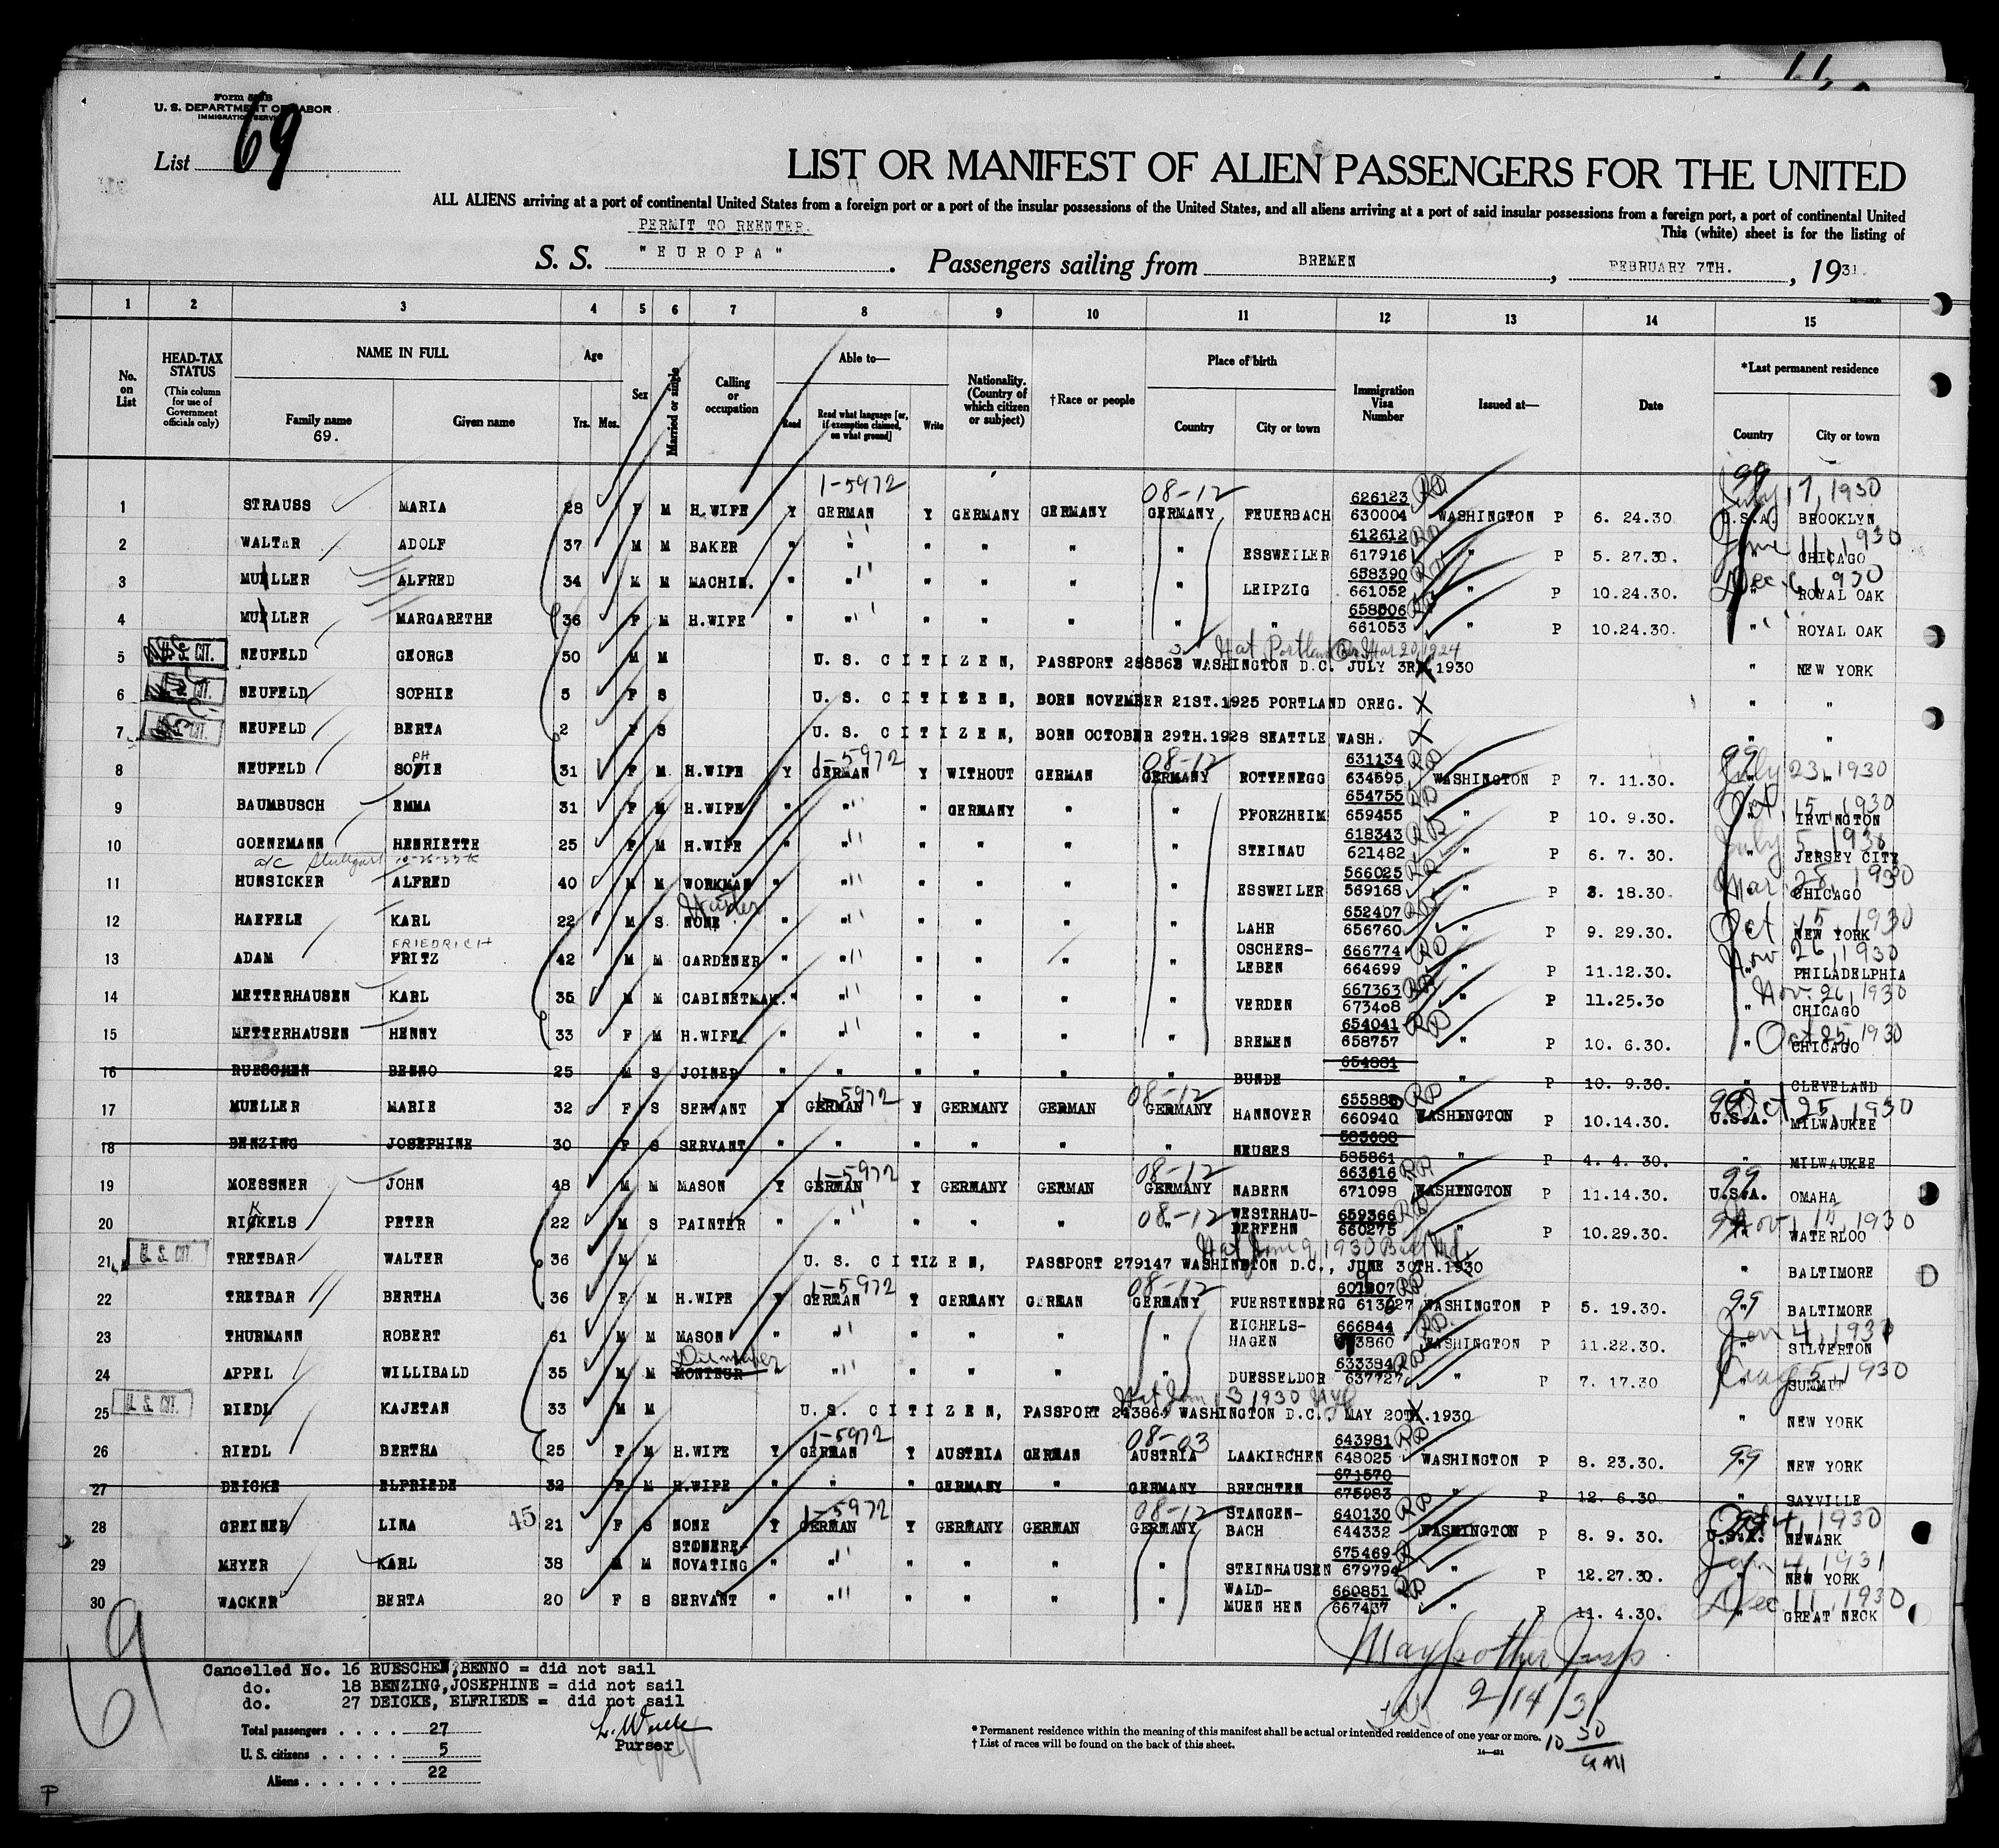 Form 500B
U. S. DEPARTMENT OF LABOR
IMMIGRATION SERVICE
List 69
LIST OR MANIFEST OF ALIEN PASSENGERS FOR THE UNITED
ALL ALIENS arriving at a port of continental United States from a foreign port or a port of the insular possessions of the United States, and all aliens arriving at a port of said insular possessions from a foreign port, a port of continental United
This (white) sheet is for the listing of
PERMIT TO REENTER.
S. S. "EUROPA" . Passengers sailing from BREMEN , FEBRUARY 7TH. , 1931.
1 2 3 4 5 6 7 8 9 10 11 12 13 14 15
No. on List
HEAD-TAX STATUS
(This column for use of Government officials only)
NAME IN FULL
Family name
69.
Given name
Age
Yrs. Mos.
Sex
Married or single
Calling or occupation
Able to—
Read
Read what language [or, if exemption claimed, on what ground]
Write
Nationality. (Country of which citizen or subject)
†Race or people
Place of birth
Country
City or town
Immigration Visa Number
Issued at—
Date
*Last permanent residence
Country
City or town
1-5972 08-12 626123 RD 99 July 17, 1930
1 STRAUSS MARIA 28 F M H.WIFE Y GERMAN Y GERMANY GERMANY GERMANY FEUERBACH 630004 WASHINGTON P 6. 24.30 U.S.A. BROOKLYN
612612 RD June 11, 1930
2 WALTER ADOLF 37 M M BAKER " " " " " " ESSWEILER 617916 " P 5. 27.30. " CHICAGO
658390 RD Dec 6, 1930
3 MUELLER ALFRED 34 M M MACHIN. " " " " " " LEIPZIG 661052 " P 10.24.30. " ROYAL OAK
658506 RD
4 MUELLER MARGARETHE 36 F M H.WIFE " " " " " " " 661053 " P 10.24.30. " ROYAL OAK
Nat Portland Or. Mar 20, 1924
5 U.S. CIT. NEUFELD GEORGE 50 M M U. S. CITIZEN, PASSPORT 288863 WASHINGTON D.C. JULY 3RD 1930 " NEW YORK
6 CIT. NEUFELD SOPHIE 5 F S U. S. CITIZEN, BORN NOVEMBER 21ST.1925 PORTLAND OREG. X " "
7 CIT. NEUFELD BERTA 2 F S U. S. CITIZEN, BORN OCTOBER 29TH.1928 SEATTLE WASH. X " "
PH 1-5972 08-12 631134 RD 99 July 23, 1930
8 NEUFELD SOFIE 31 F M H.WIFE Y GERMAN Y WITHOUT GERMAN GERMANY ROTTENEGG 634595 WASHINGTON P 7. 11.30. " "
654755 RD Oct 15, 1930
9 BAUMBUSCH EMMA 31 F M H.WIFE " " " GERMANY " " PFORZHEIM 659455 " P 10. 9.30. " IRVINGTON
618343 RD July 5, 1930
10 GOENEMANN HENRIETTE 25 F M H.WIFE " " " " " " STEINAU 621482 " P 6. 7. 30. " JERSEY CITY
a/c Stuttgart 10-26-33-K 566025 RD Mar 28, 1930
11 HUNSICKER ALFRED 40 M M WORKMAN " " " " " " ESSWEILER 569168 " P 3. 18.30. " CHICAGO
Waiter 652407 RD Oct 15, 1930
12 HAEFELE KARL 22 M S NONE " " " " " " LAHR 656760 " P 9. 29.30. " NEW YORK
FRIEDRICH OSCHERS- 666774 RD Nov 26, 1930
13 ADAM FRITZ 42 M M GARDENER " " " " " " LEBEN 664699 " P 11.12.30. " PHILADELPHIA
667363 RD Nov. 26, 1930
14 METTERHAUSEN KARL 35 M M CABINETMAK. " " " " " " VERDEN 673408 " P 11.25.30 " CHICAGO
654041 RD Oct 25, 1930
15 METTERHAUSEN HENNY 33 F M H.WIFE " " " " " " BREMEN 658757 " P 10. 6.30. " CHICAGO
654881
16 RUESCHEN BENNO 25 M S JOINER " " " " " " BUNDE " P 10. 9.30. " CLEVELAND
1-5972 08-12 655888 RD 99 Oct 25, 1930
17 MUELLER MARIE 32 F S SERVANT Y GERMAN Y GERMANY GERMAN GERMANY HANNOVER 660940 WASHINGTON P 10.14.30. U.S.A. MILWAUKEE
18 BENZING JOSEPHINE 30 F S SERVANT " " " " " " NEUSES 585861 " P 4. 4. 30. " MILWAUKEE
1-5972 08-12 663616 RD 99
19 MOESSNER JOHN 48 M M MASON Y GERMAN Y GERMANY GERMAN GERMANY NABERN 671098 WASHINGTON P 11.14.30. U.S.A. OMAHA
K 08-12 WESTRHAU- 659366 RD 99 1930
20 RICKELS PETER 22 M S PAINTER " " " " " " DERFEHN 660275 " P 10.29.30. " WATERLOO
Nat June 9, 1930 Balt Md.
21 U. S. CIT TRETBAR WALTER 36 M M U. S. CITIZEN, PASSPORT 279147 WASHINGTON D.C., JUNE 30TH.1930 " BALTIMORE
1-5972 08-12 RD 99
22 TRETBAR BERTHA 36 F M H.WIFE Y GERMAN Y GERMANY GERMAN GERMANY FUERSTENBERG WASHINGTON P 5. 19.30. " BALTIMORE
EICHELS- 666844 RD Jan 4, 1931
23 THURMANN ROBERT 61 M M MASON " " " " " " HAGEN WASHINGTON P 11.22.30. " SILVERTON
633384 RD Aug 5, 1930
24 APPEL WILLIBALD 35 M M MONTEUR " " " " " " DUESSELDOR 637727 " P 7. 17.30 " SUMMIT
Nat Jan 13 1930 NYC
25 U. S. CIT. RIEDL KAJETAN 33 M M U.S. CITIZEN, PASSPORT 243864 WASHINGTON D.C. MAY 20TH.1930 " NEW YORK
1-5972 08-03 643981 RD
26 RIEDL BERTHA 25 F M H.WIFE Y GERMAN Y AUSTRIA GERMAN AUSTRIA LAAKIRCHEN 648025 WASHINGTON P 8. 23.30. 99 NEW YORK
671570
27 DEICKE ELFRIEDE 32 F M H.WIFE " " " GERMANY " GERMANY BRECHTEN 675983 " P 12. 6.30 " SAYVILLE
1-5972 08-12 STANGEN- 640130 RD 99 1930
28 GREINER LINA 45 21 F S NONE Y GERMAN Y GERMANY GERMAN GERMANY BACH 644332 WASHINGTON P 8. 9. 30. U.S.A. NEWARK
STONERE- 675469 Jan 4, 1931
29 MEYER KARL 38 M M NOVATING " " " " " " STEINHAUSEN 679794 " P 12.27.30. " NEW YORK
WALD- 660851 RD Dec 11, 1930
30 WACKER BERTA 20 F S SERVANT " " " " " " MUENHEN 667437 " P 11. 4.30. " GREAT NECK
69
Cancelled No. 16 RUESCHEN,BENNO = did not sail
do. 18 BENZING,JOSEPHINE = did not sail
do. 27 DEICKE, ELFRIEDE = did not sail
Total passengers . . . . 27
U. S. citizens . . . . 5
Aliens . . . . . . 22
Purser
2/14/31
10 30 AM
* Permanent residence within the meaning of this manifest shall be actual or intended residence of one year or more.
† List of races will be found on the back of this sheet.
14—421
P